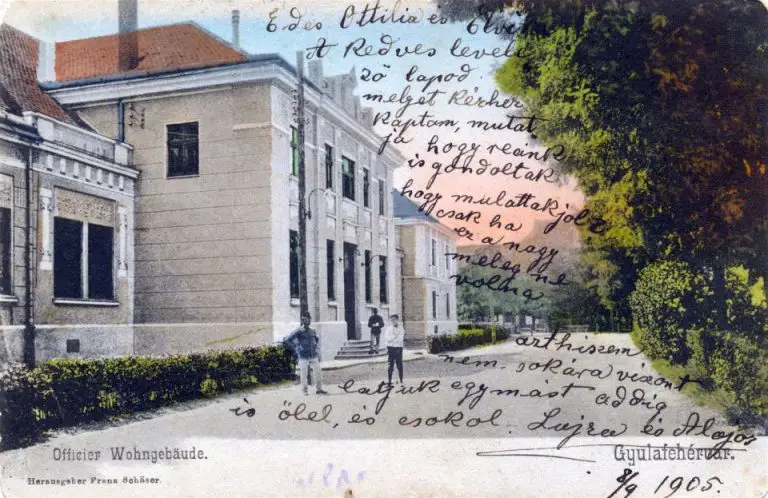 Edes Ottilia és Elvir
A Kedves levele
ző lapod
melyet Kézhez
Kaptam, mutat
ja hogy reánk
is gondoltak
hogy mulattak jól
csak ha
ez a nagy
meleg ne
volna
azt hiszem
nem sokára viszont
látjuk egymást addig
is ölel, és csokol. Lujza és Alajos
Officier Wohngebäude.
Gyulafehérvár.
Herausgeber Franz Schäser.
8/9 1905.